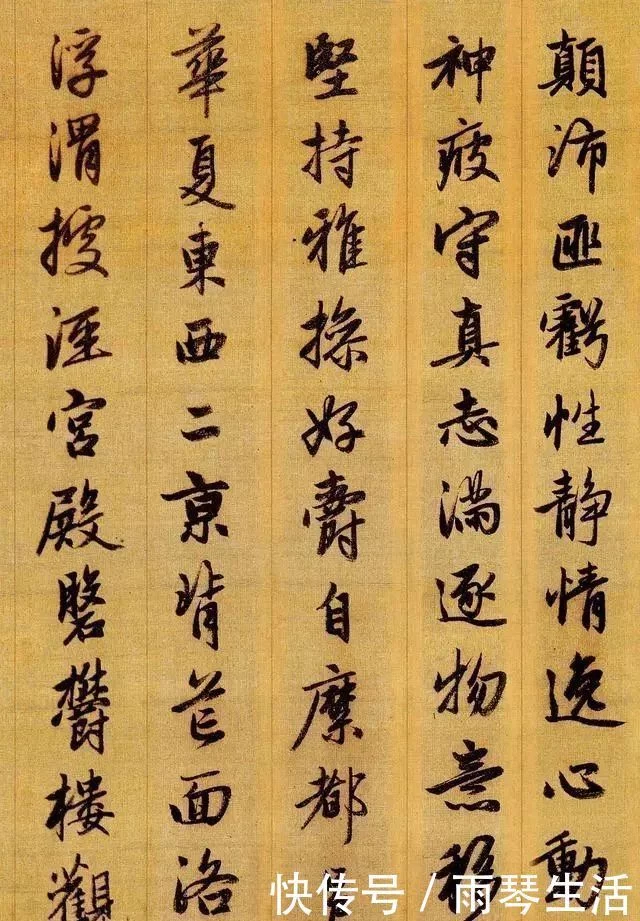 顛沛匪虧性静情逸心動
神疲守真志滿逐物意移
堅持雅操好爵自縻都
華夏東西二京背芒面洛
浮渭據涇宮殿磐鬱樓觀
快传号 / 雨琴生活